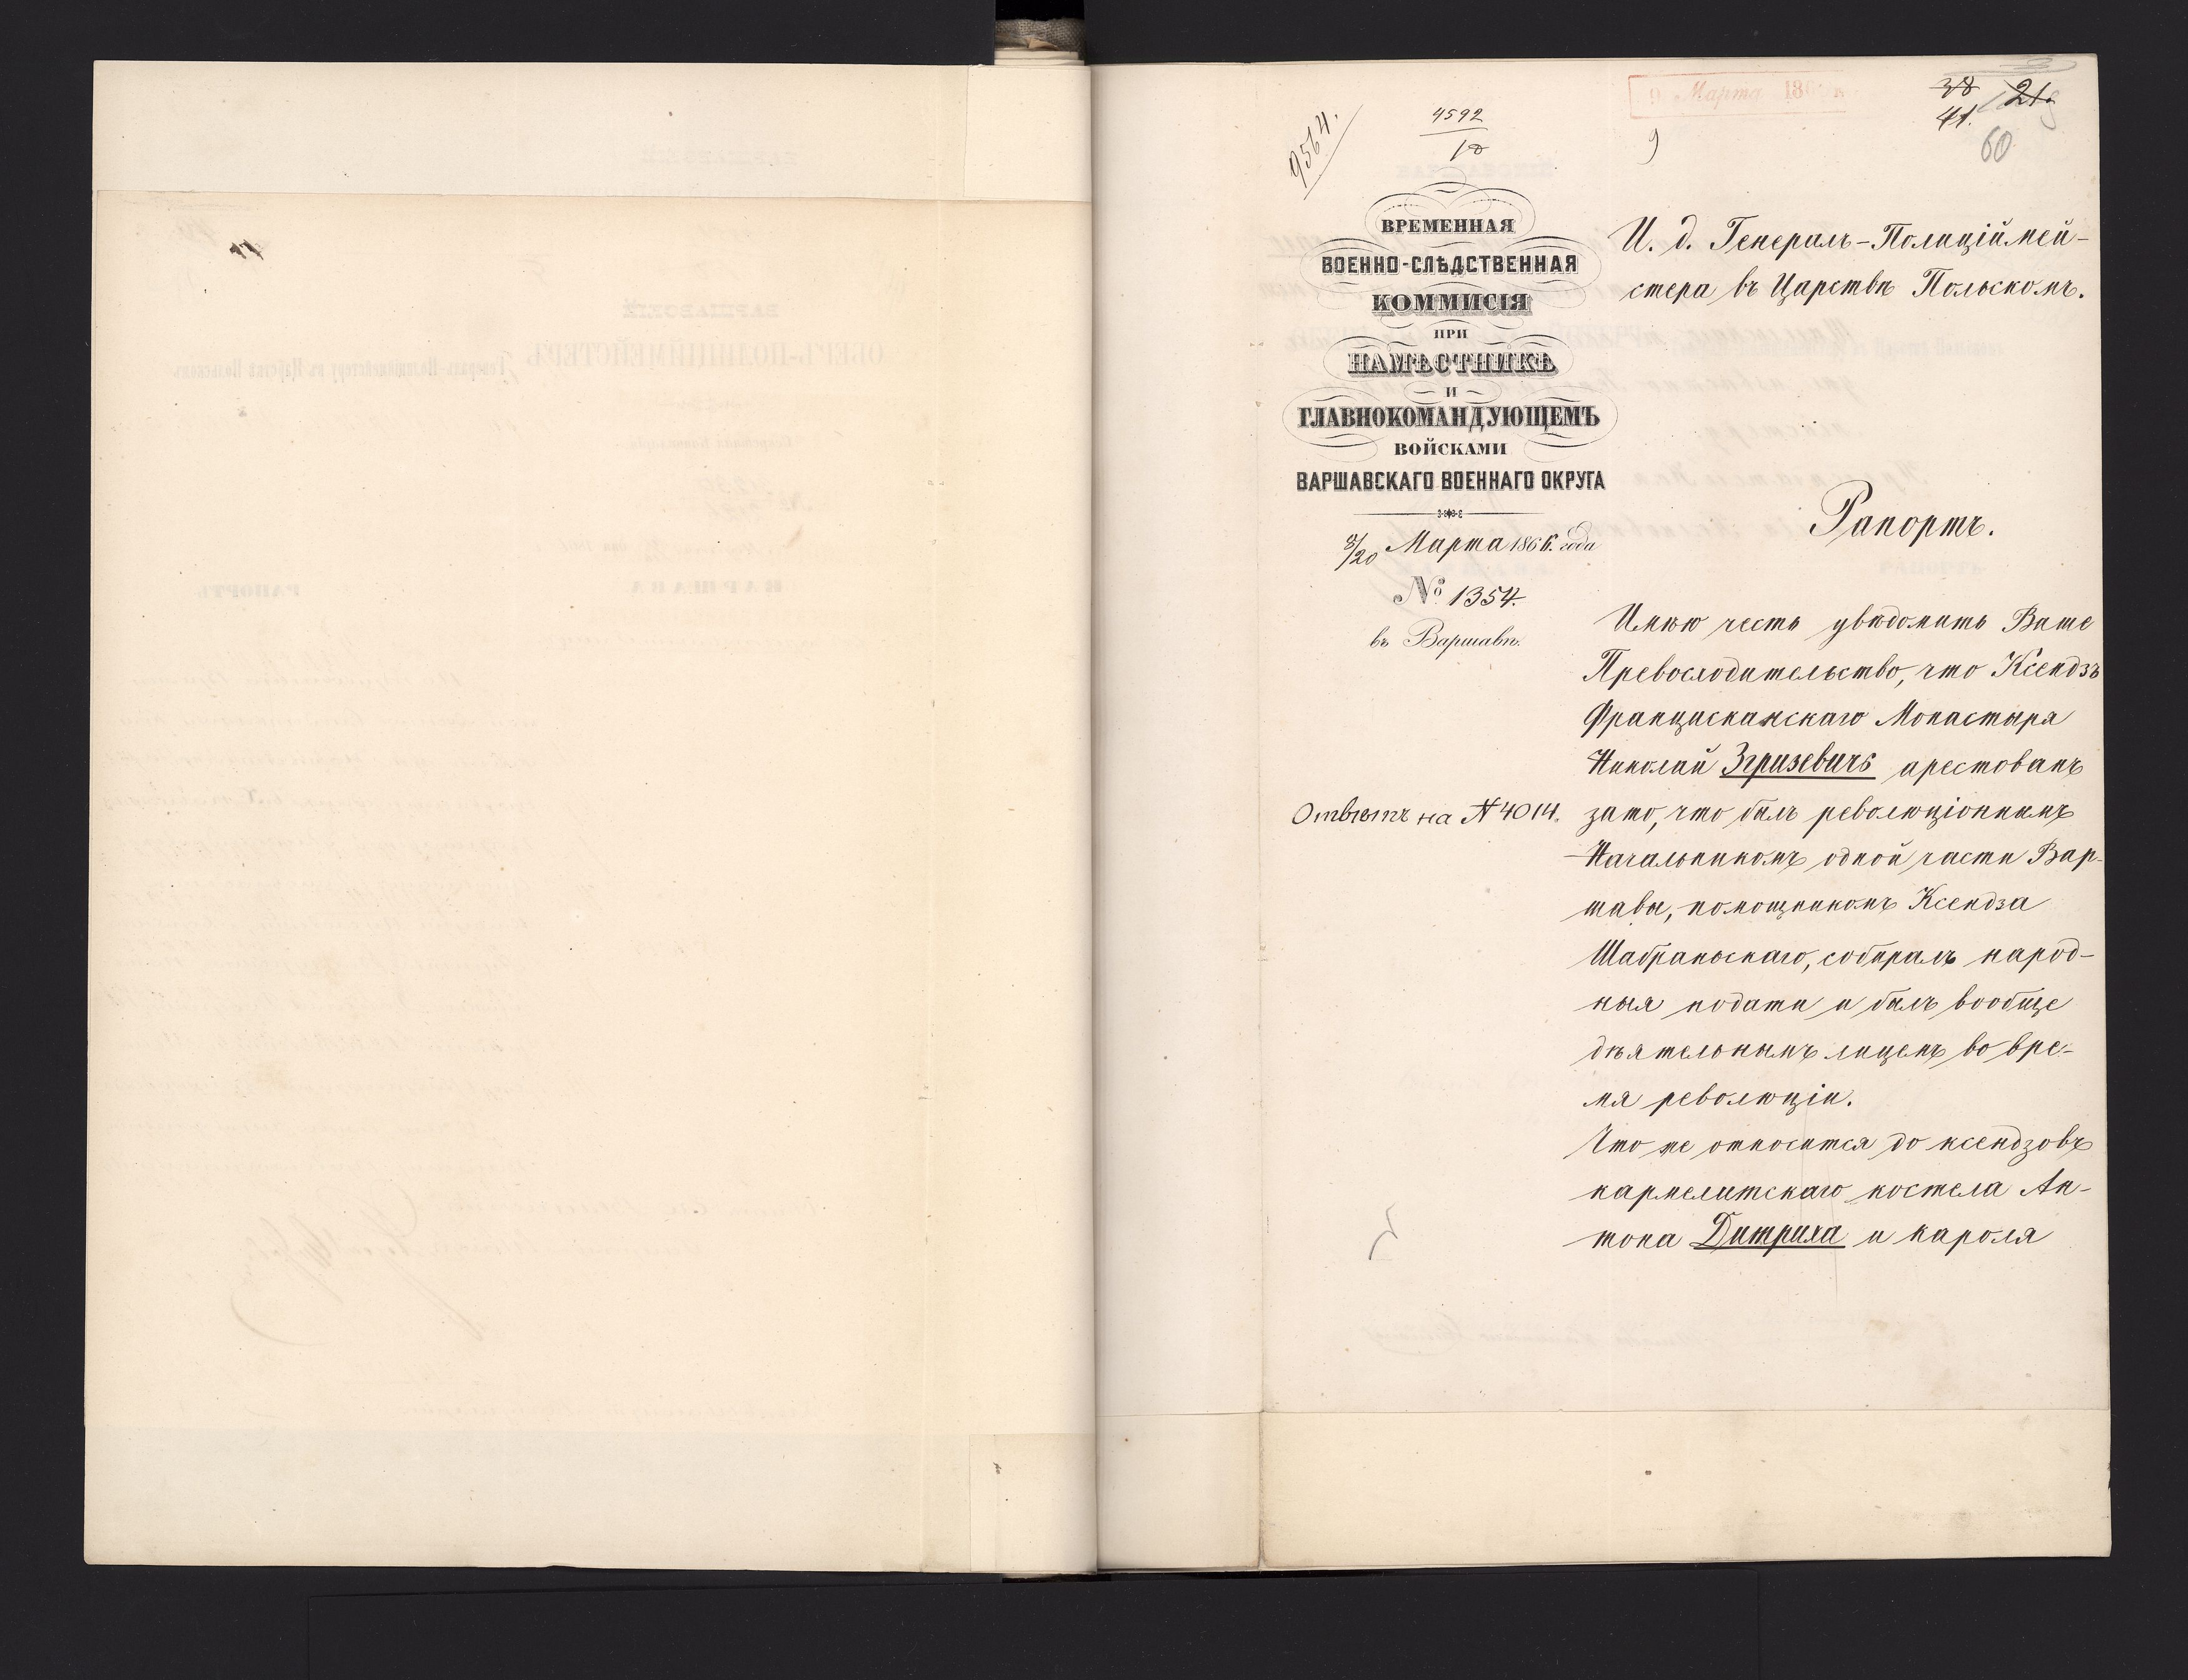 9 Марта 186
38 21.
41.
60
9564.
4592
18
9
ВРЕМЕННАЯ
ВОЕННО-СЛѢДСТВЕННАЯ
КОММИСІЯ
ПРИ
НАМѢСТНИКѢ
И
ГЛАВНОКОМАНДУЮЩЕМЪ
ВОЙСКАМИ
ВАРШАВСКАГО ВОЕННАГО ОКРУГА
8/20 Марта 1866. года
№ 1354.
въ Варшавѣ.
Отвѣтъ на № 4014.
И. д. Генералъ-Полиціймей-
стера въ Царствѣ Польскомъ.
Рапортъ.
Имѣю честь увѣдомить Ваше
Превосходительство, что Ксендзъ
Францисканскаго Монастыря
Николай Згризевичъ арестованъ
зато, что былъ революціоннымъ
Начальникомъ одной части Вар-
шавы, помощникомъ Ксендза
Шабраньскаго, собиралъ народ-
ныя подати и былъ вообще
дѣятельнымъ лицемъ во вре-
мя революціи.
Что же относится до ксендзовъ
кармелитскаго костела Ан-
тона Дитриха и кароля